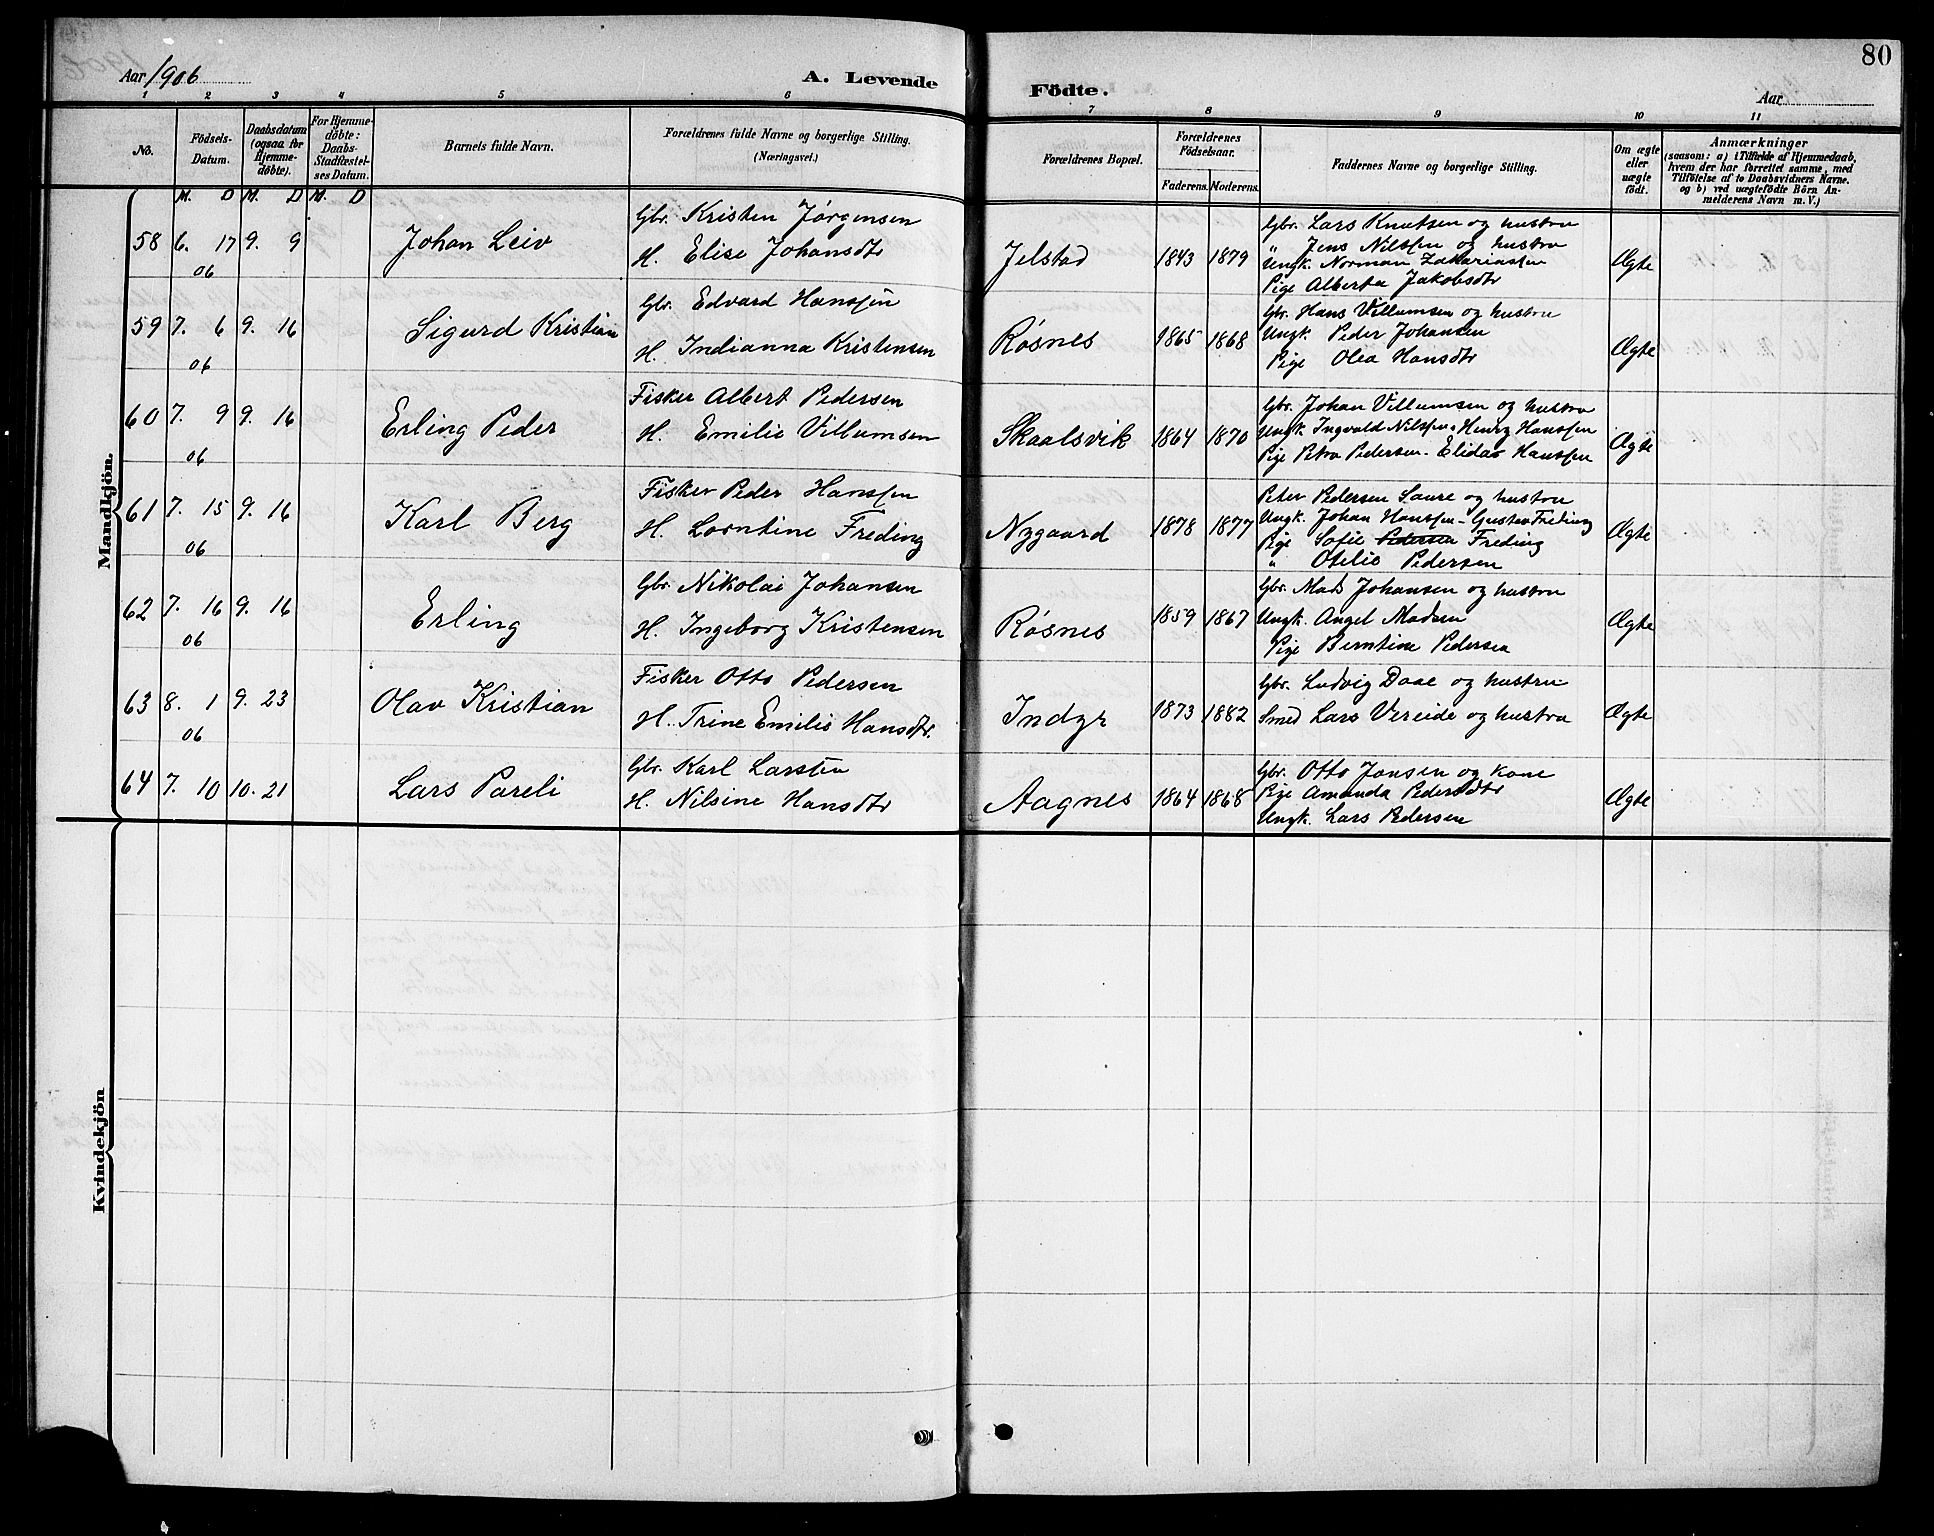 80
Aar 1906
A. Levende Födte.
Aar
1 2 3 4 5 6 7 8 9 10 11
No.
Födsels-Datum.
Daabsdatum (ogsaa for Hjemme-döbte).
For Hjemme-döbte: Daabs-Stadfæstel-ses Datum.
Barnets fulde Navn.
Forældrenes fulde Navne og borgerlige Stilling.
(Næringsvei.)
Forældrenes Bopæl.
Forældrenes Födselsaar.
Faderens. Moderens.
Faddernes Navne og borgerlige Stilling.
Om ægte eller uægte födt.
Anmærkninger
(saasom: a) i Tilfælde af Hjemmedaab,
hvem der har forrettet samme, med
Tilföielse af to Daabsvidners Navne.
og b) ved uægtefödte Börn An-
melderens Navn m. V.)
M. D M. D M. D
Mandkjön.
58 6. 17 9. 9
06
Johan Leiv
Gbr. Kristen Jørgensen
H. Elise Johansdtr
Jelstad
1843 1879
Gbr. Lars Knutsen og hustru
" Jens Nilssen og hustru
Ungk. Norman Zakariassen
Pige Alberta Jakobsdtr
Ægte
59 7. 6 9. 16
06
Sigurd Kristian
Gbr. Edvard Hanssen
H. Indianna Kristensen
Røsnes
1865 1868
Gbr. Hans Villumsen og hustru
Ungk. Peder Johansen
Pige Olea Hansdtr
Ægte
60 7. 9 9. 16
06
Erling Peder
Fisker Albert Pedersen
H. Emilie Villumsen
Skaalsvik
1864 1870
Gbr. Johan Villumsen og hustru
Ungk. Ingvald Nilssen. Henry Hanssen
Pige Petra Pedersen - Elida Hanssen
Ægte
61 7. 15 9. 16
06
Karl Berg
Fisker Peder Hanssen
H. Lorntine Freding
Nygaard
1878 1877
Peter Pedersen Saure og hustru
Ungk. Johan Hanssen - Gustav Freding
Pige Sofie Pedersen Freding
" Otelie Pedersen
Ægte
62 7. 16 9. 16
06
Erling
Gbr. Nikolai Johansen
H. Ingeborg Kristensen
Røsnes
1859 1867
Gbr. Mads Johansen og hustru
Ungk. Angel Madsen
Pige Berntine Pedersen
Ægte
63 8. 1 9. 23
06
Olav Kristian
Fisker Otto Pedersen
H. Trine Emilie Hansdtr.
Indyr
1873 1882
Gbr. Ludvig Daae og hustru
Smed Lars Vereide og hustru
Ægte
64 7. 10 10. 21
Lars Pareli
Gbr. Karl Larsen
H. Nilsine Hansdtr
Aagnes
1864 1868
Gbr. Otto Jonsen og Kone
Pige Amanda Pedersdtr
Ungk. Lars Pedersen
Ægte
Kvindekjön